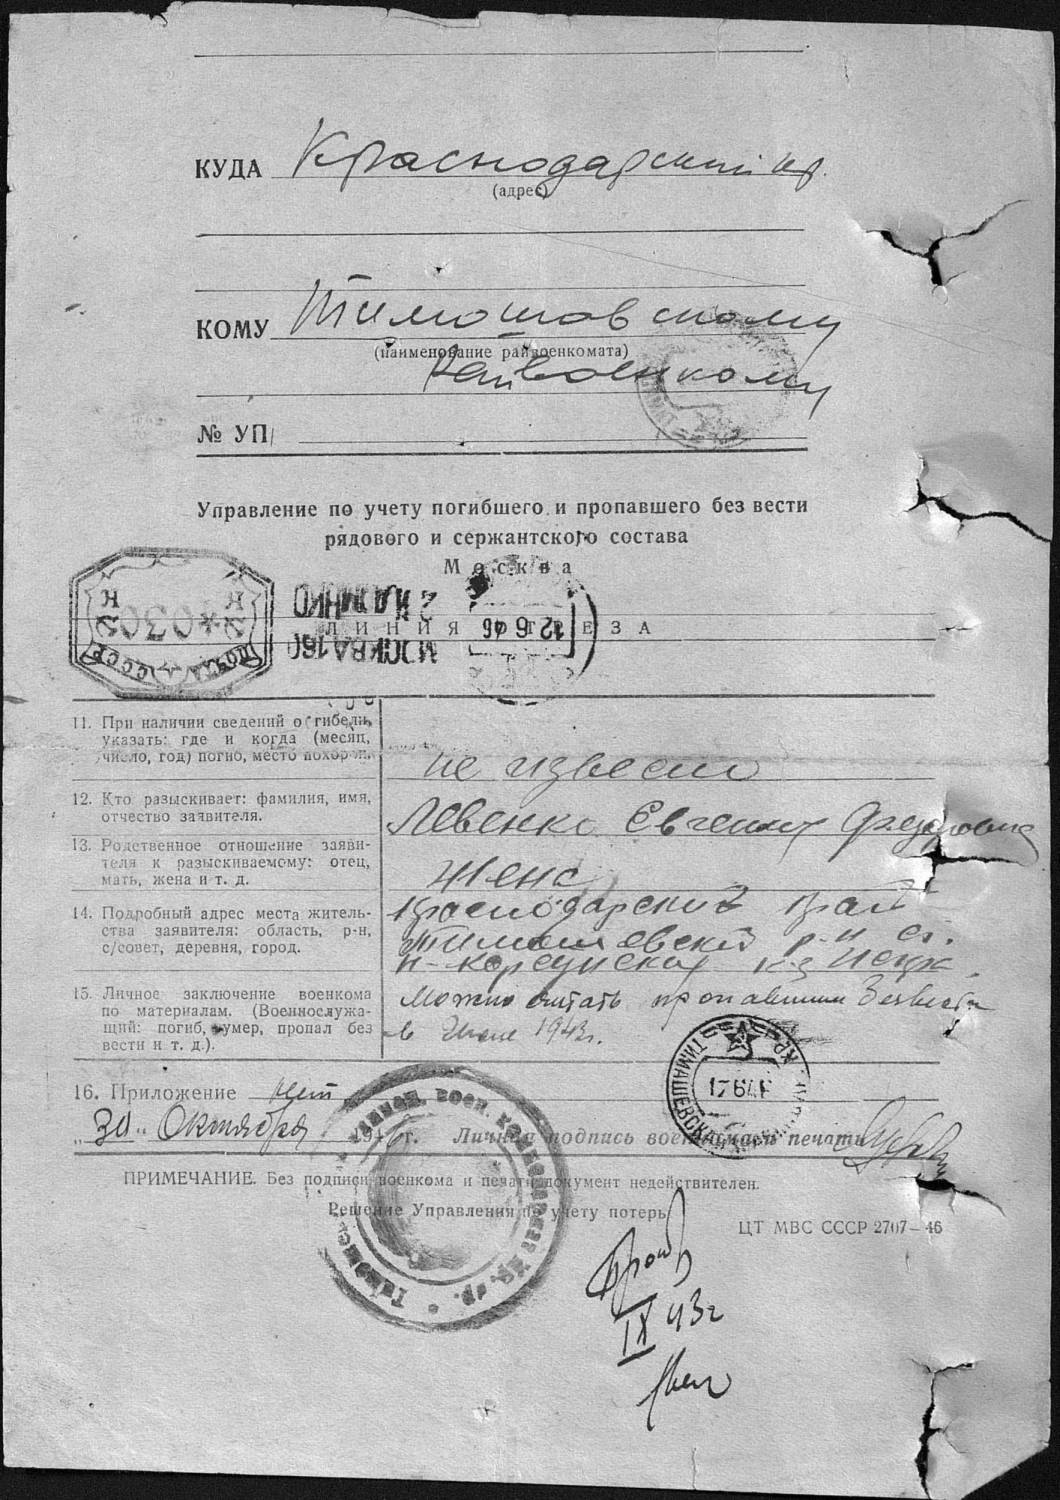 КУДА Краснодарский кр.
(адрес)
КОМУ Тимошовскому
(наименование райвоенкомата)
Райвоенкому
№ УП/
Управление по учету погибшего и пропавшего без вести
рядового и сержантского состава
Москва
ЛИНИЯ ОТРЕЗА
ПОЧТА СССР
*030
К К
МОСКВА 160
12 6 46
11. При наличии сведений о гибели,
указать: где и когда (месяц,
число, год) погиб, место похорон.
не извесно
12. Кто разыскивает: фамилия, имя,
отчество заявителя.
Левенко Евгения Федоровна
13. Родственное отношение заяви-
теля к разыскиваемому: отец,
мать, жена и т. д.
жена
14. Подробный адрес места житель-
ства заявителя: область, р-н,
с/совет, деревня, город.
Краснодарский край
Тимошевский р-н ст.
н-корсунская к-з
15. Личное заключение военкома
по материалам. (Военнослужа-
щий: погиб, умер, пропал без
вести и т. д.).
Можно считать пропавшим безвести
в 1943г.
16. Приложение нет
„30" Октября 1946 г. Личная подпись военкома и печать
ТИМАШЕВСКАЯ КР
17646
ПРИМЕЧАНИЕ. Без подписи военкома и печати документ недействителен.
Решение Управления по учету потерь
ЦТ МВС СССР 2707–46
IX 43г